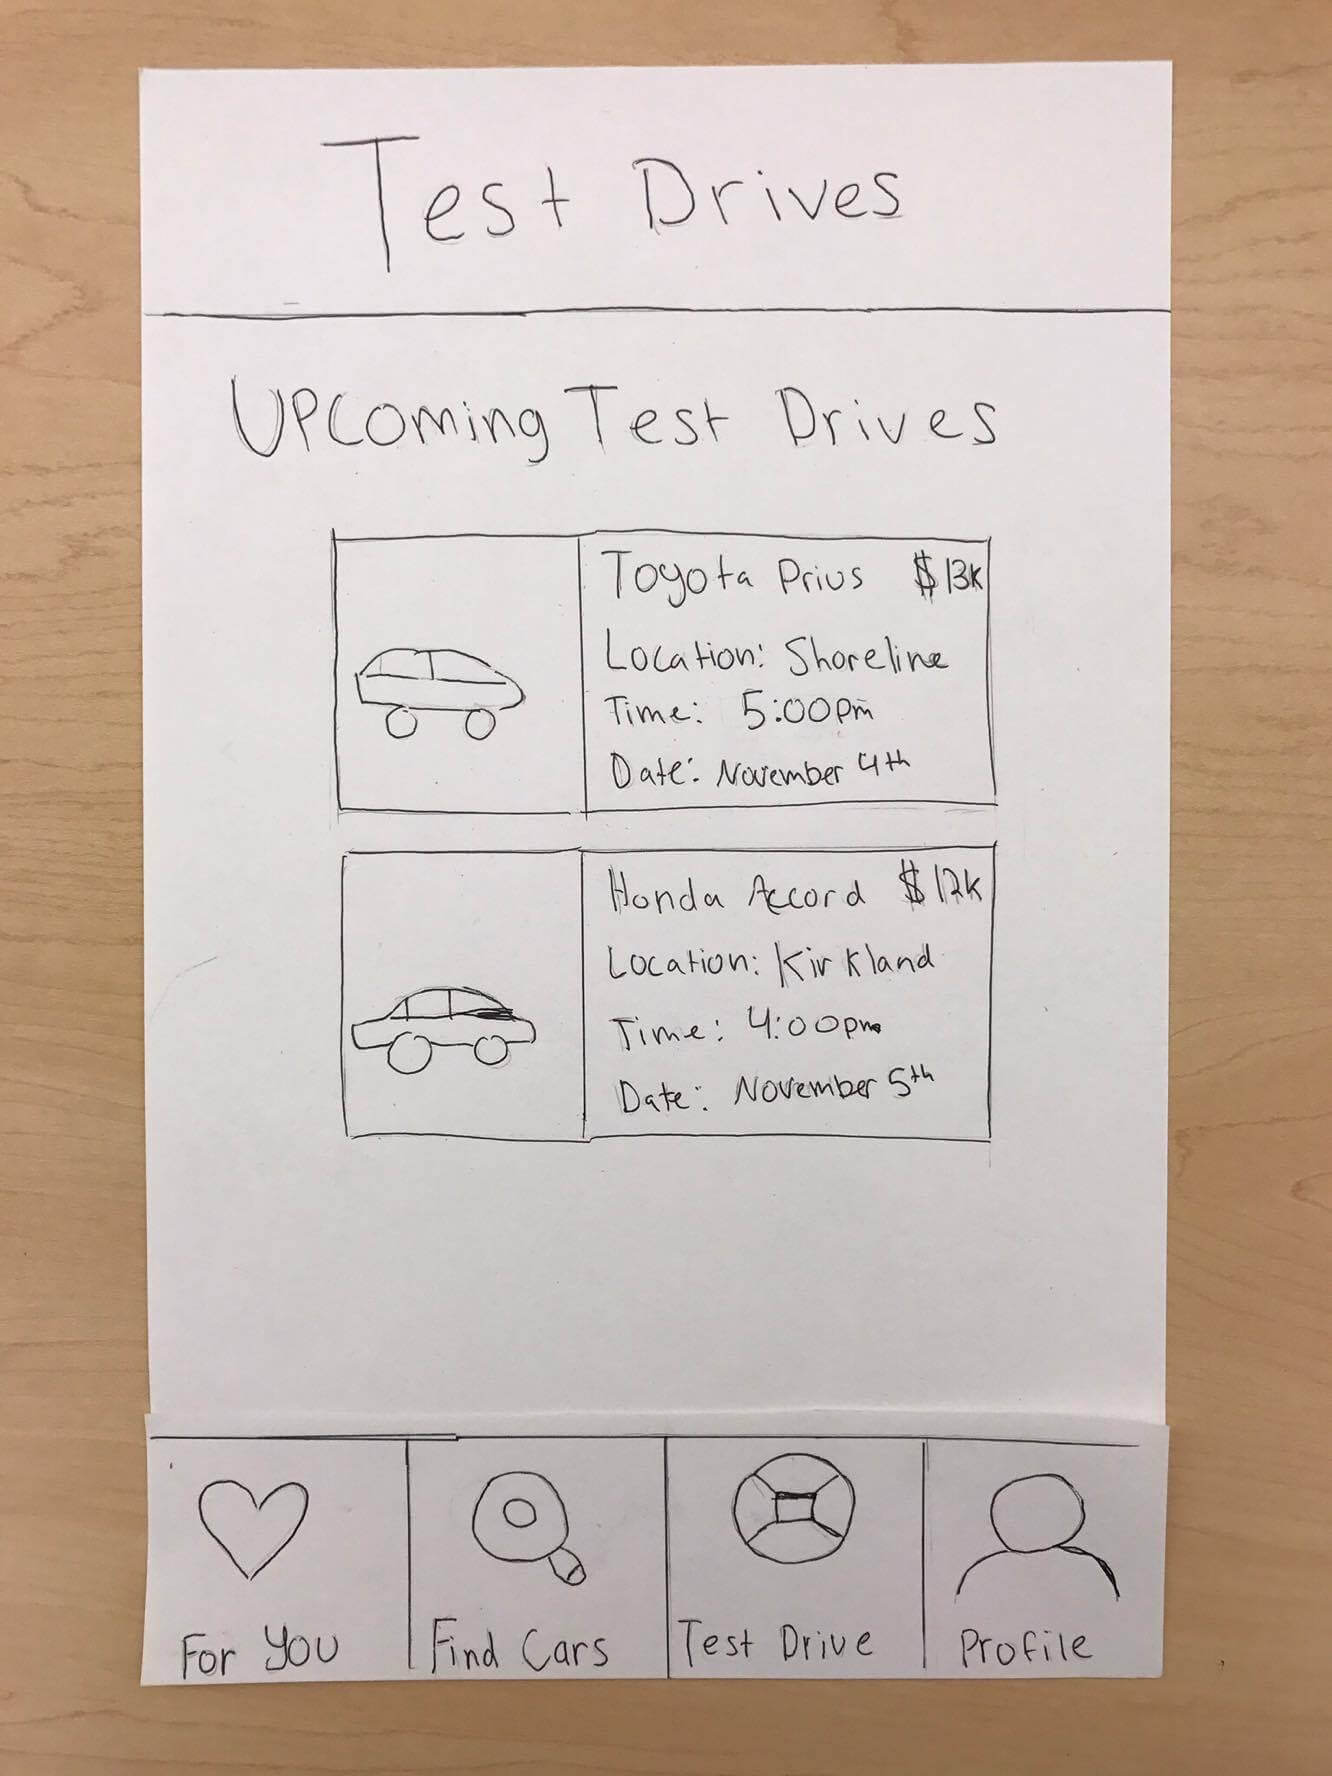 Test Drives
Upcoming Test Drives
Toyota Prius $13k
Location: Shoreline
Time: 5:00pm
Date: November 4th
Honda Accord $12k
Location: Kirkland
Time: 4:00pm
Date: November 5th
For You
Find Cars
Test Drive
Profile